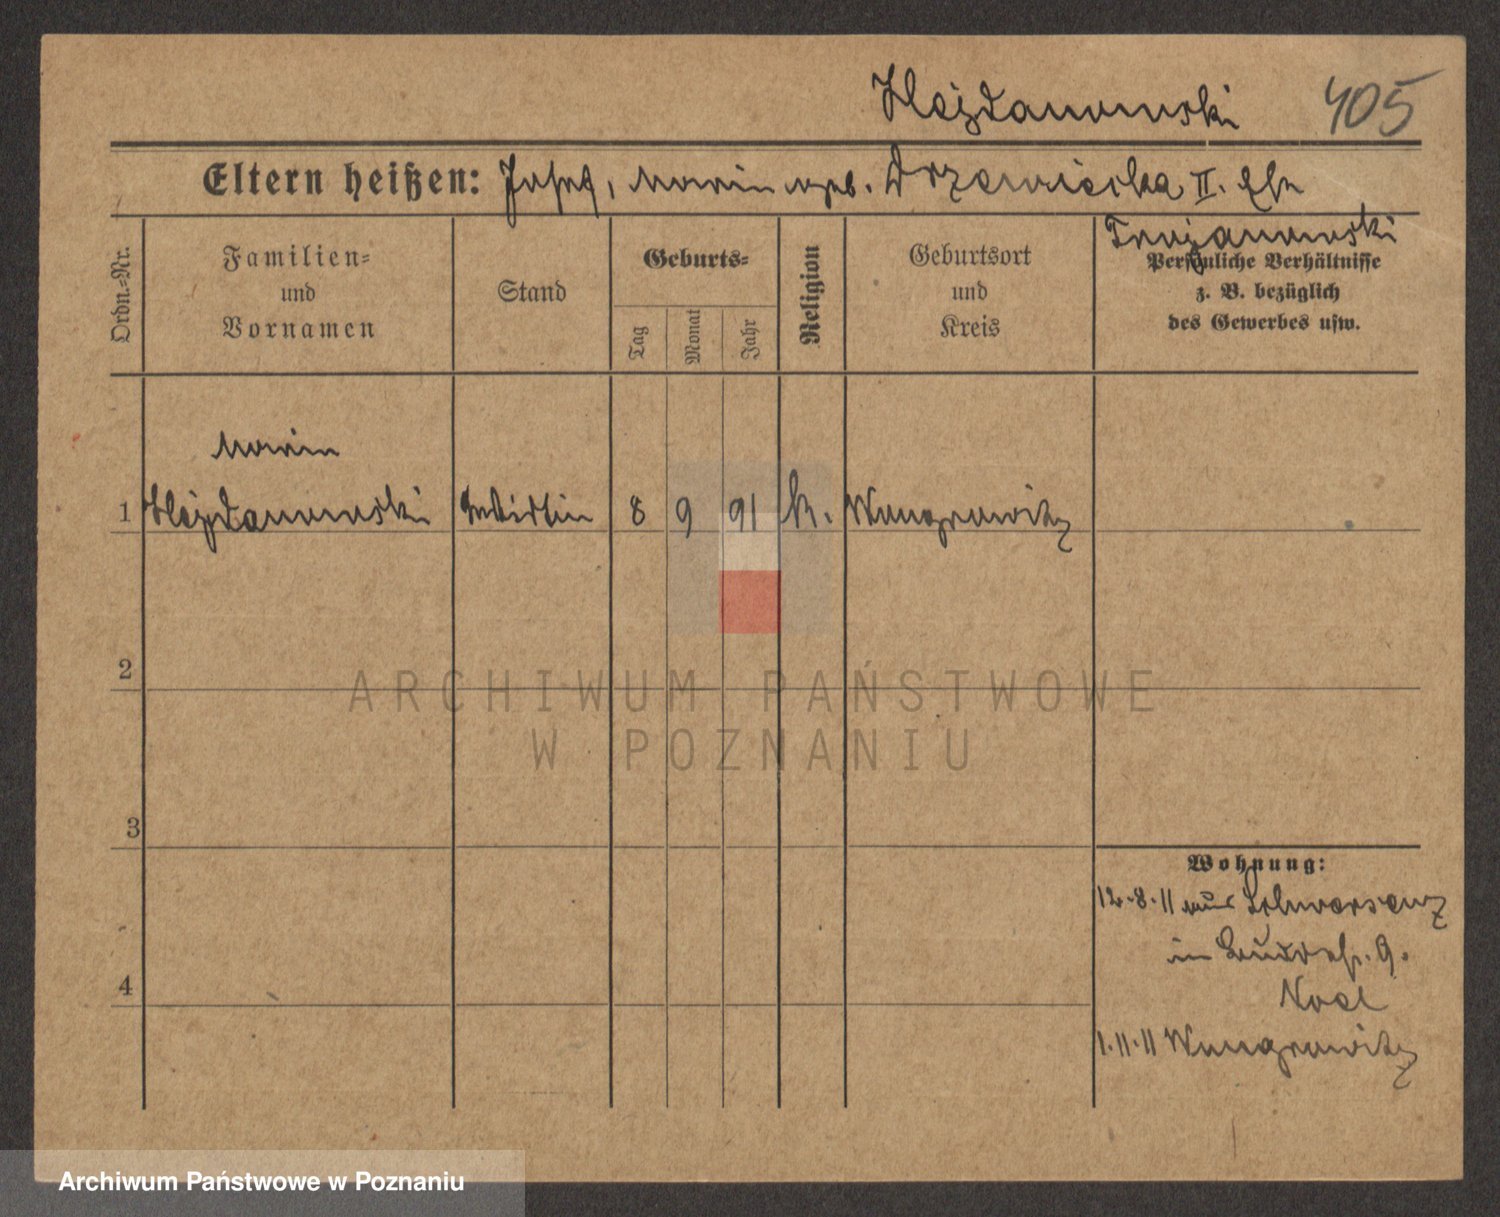 Hejdanowski 405
Eltern heißen: Josef, Maria geb. Drzewiecka II. Ehe
Trojanowski
Ordn.=Nr.
Familien=
und
Vornamen
Stand
Geburts=
Tag
Monat
Jahr
Religion
Geburtsort
und
Kreis
Persönliche Verhältnisse
z. B. bezüglich
des Gewerbes usw.
Maria
1 Hejdanowski 8 9 91 k. Wongrowitz
2
3
4
Wohnung:
12.8.11 aus Schwersenz
in
9.
1.11.11 Wongrowitz
ARCHIWUM PAŃSTWOWE
W POZNANIU
Archiwum Państwowe w Poznaniu